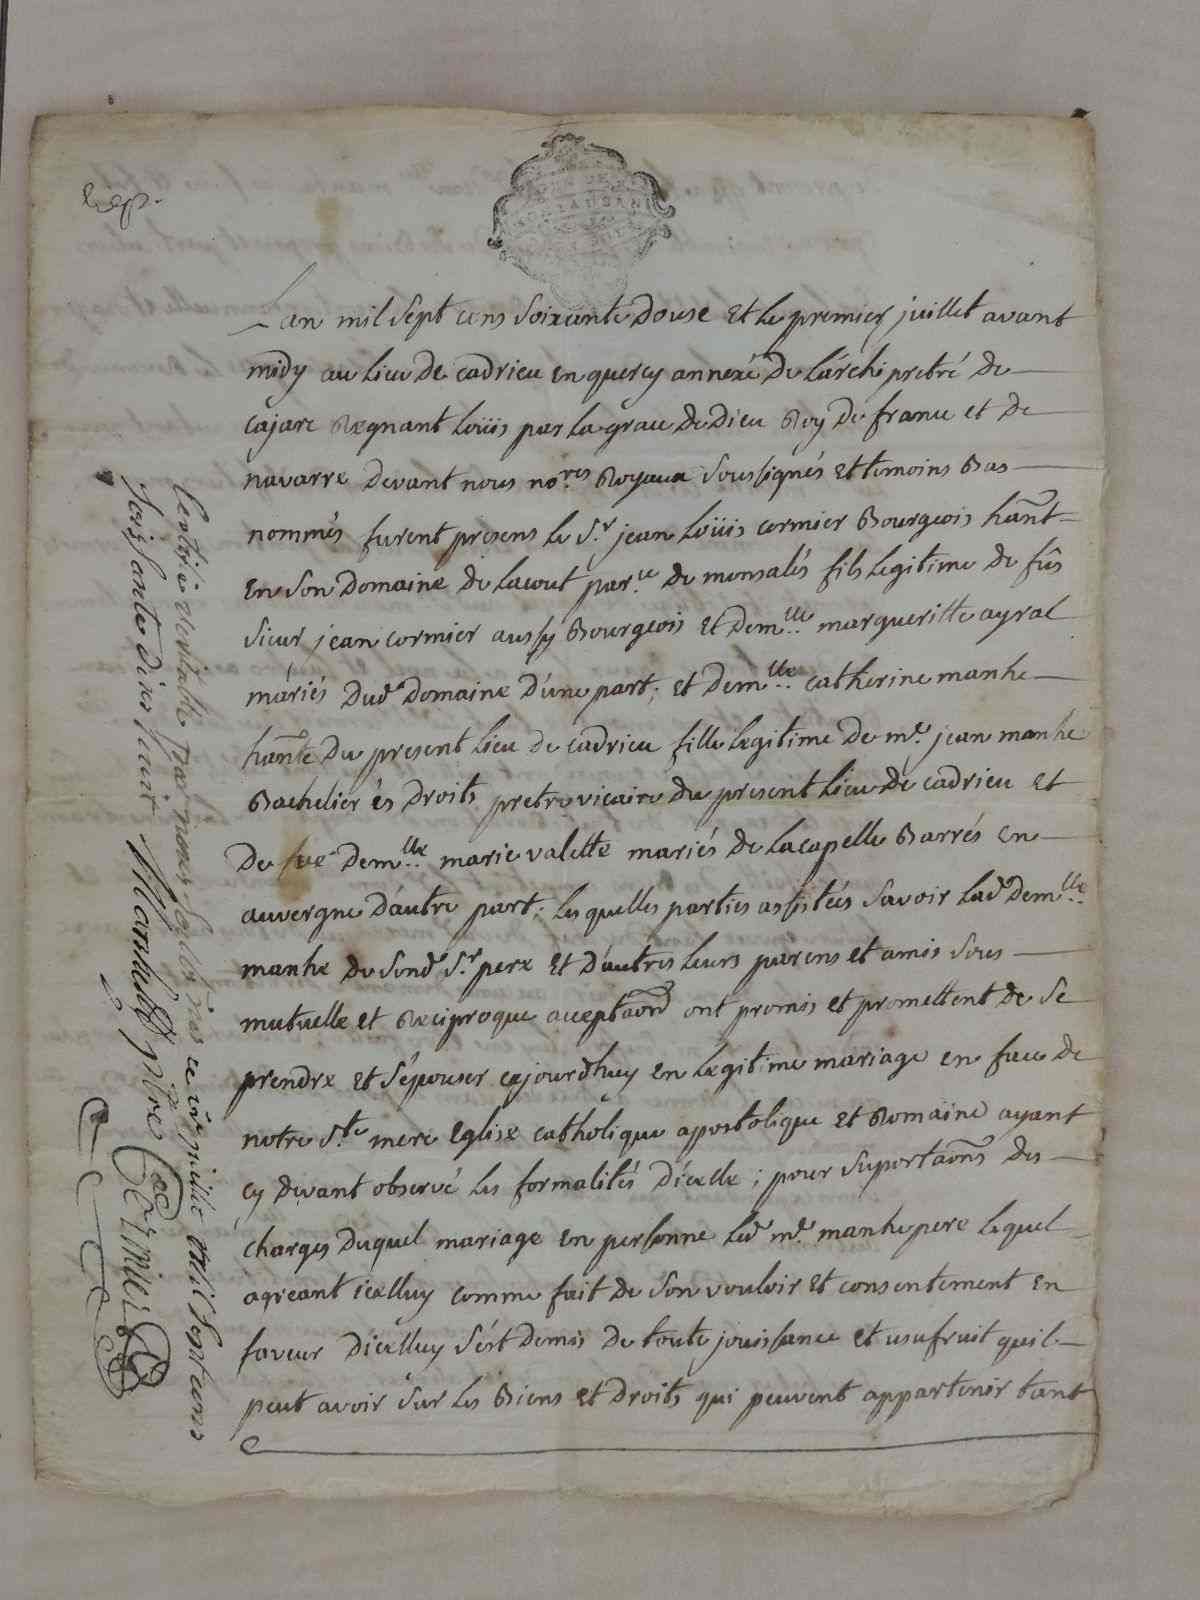 Lan mil Sept cens Soixante Douse et le premier juillet avant
midy au lieu de cadrieu en quercy annexé de Lárchipretré de
Cajarc Regnant Loüis par la grace de Dieu Roy de france et de
navarre Devant nous no.res Royaux Soussignés et temoins Bas
nommés furent presens le S.r jean Loüis cormier Bourgeois hant
en Son Domaine de Lacout par.ce de monsalés fils Legitime de fûs
Sieur jean cormier aussy Bourgeois et Dem.lle margueritte ayral
máriés Dud. Domaine D'une part; et Dem.lle catherine manhe
hante Du present Lieu de cadrieu fille Legitime De m.e jean manhe
Bachelier és Droits pretre vicaire du present Lieu de cadrieu et
De fue Dem.lle marie valette mariés de Lacapelle Barrés en
auvergne D'autre part; Lesquelles parties assistées Savoir Lad. Dem.lle
manhe de Sond. S.r pere et D'autres Leurs parens et amis Sous
mutuelle et Reciproque acceptaon ont promis et promettent de Se
prendre et S'épouser cejourd'huy en Legitime mariage en face de
notre S.te mere Eglise catholique apostolique et Romaine ayant
cy devant observé les formalités D'icelle; pour Suportaons des
charges Duquel mariage en personne Led. m.e manhe pere Lequel
agreant icelluy comme fait de Son vouloir et consentement en
faveur D'icelluy S'ést Demis de toute jouissance et usufruit quil
peut avoir Sur les Biens et Droits qui peuvent appartenir tant
veritable par nous ce vr juillet mil Sept cens
Soixante dix huit Manhe ptre Cormier